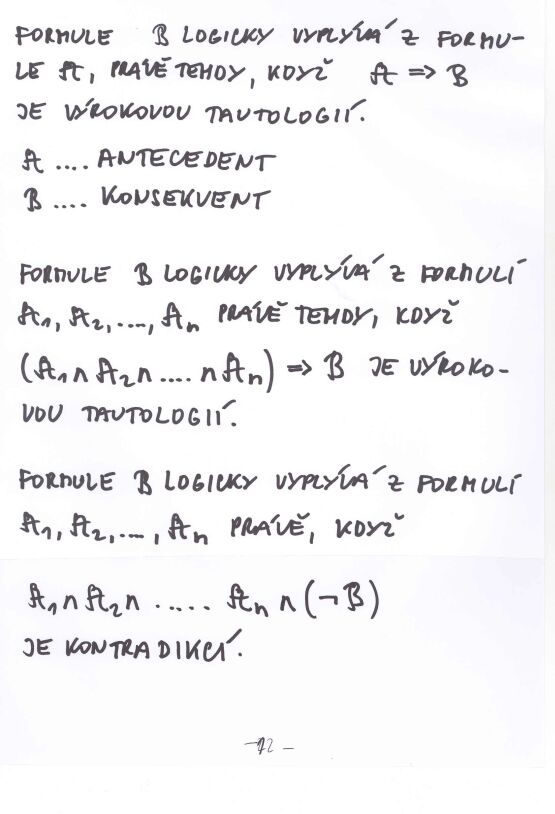 FORMULE B LOGICKY VYPLÝVÁ Z FORMU-
LE A, PRÁVĚ TEHDY, KDYŽ A ⇒ B
JE VÝROKOVOU TAUTOLOGIÍ.
A .... ANTECEDENT
B .... KONSEKVENT
FORMULE B LOGICKY VYPLÝVÁ Z FORMULÍ
A₁, A₂, ...., Aₙ PRÁVĚ TEHDY, KDYŽ
(A₁ ∧ A₂ ∧ .... ∧ Aₙ) ⇒ B JE VÝROKO-
VOU TAUTOLOGIÍ.
FORMULE B LOGICKY VYPLÝVÁ Z FORMULÍ
A₁, A₂, ..., Aₙ PRÁVĚ, KDYŽ
A₁ ∧ A₂ ∧ ..... Aₙ ∧ (¬B)
JE KONTRADIKCÍ.
-12-